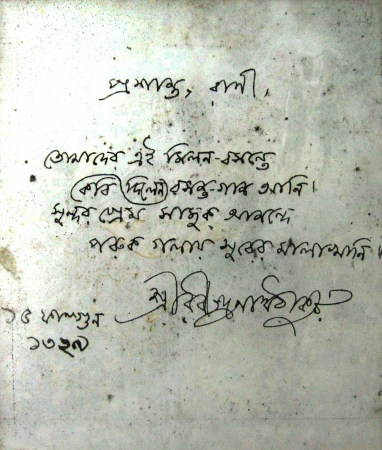 প্রশান্ত, রাণী,
তোমাদের এই মিলন-বসন্তে
কবি দিলেন বসন্ত-গান আনি।
সুন্দর প্রেম সাজুক আনন্দে
পরুক গলায় সুরের মালাখানি॥
শ্রীরবীন্দ্রনাথ ঠাকুর
১৫ ফাল্গুন
১৩২৯